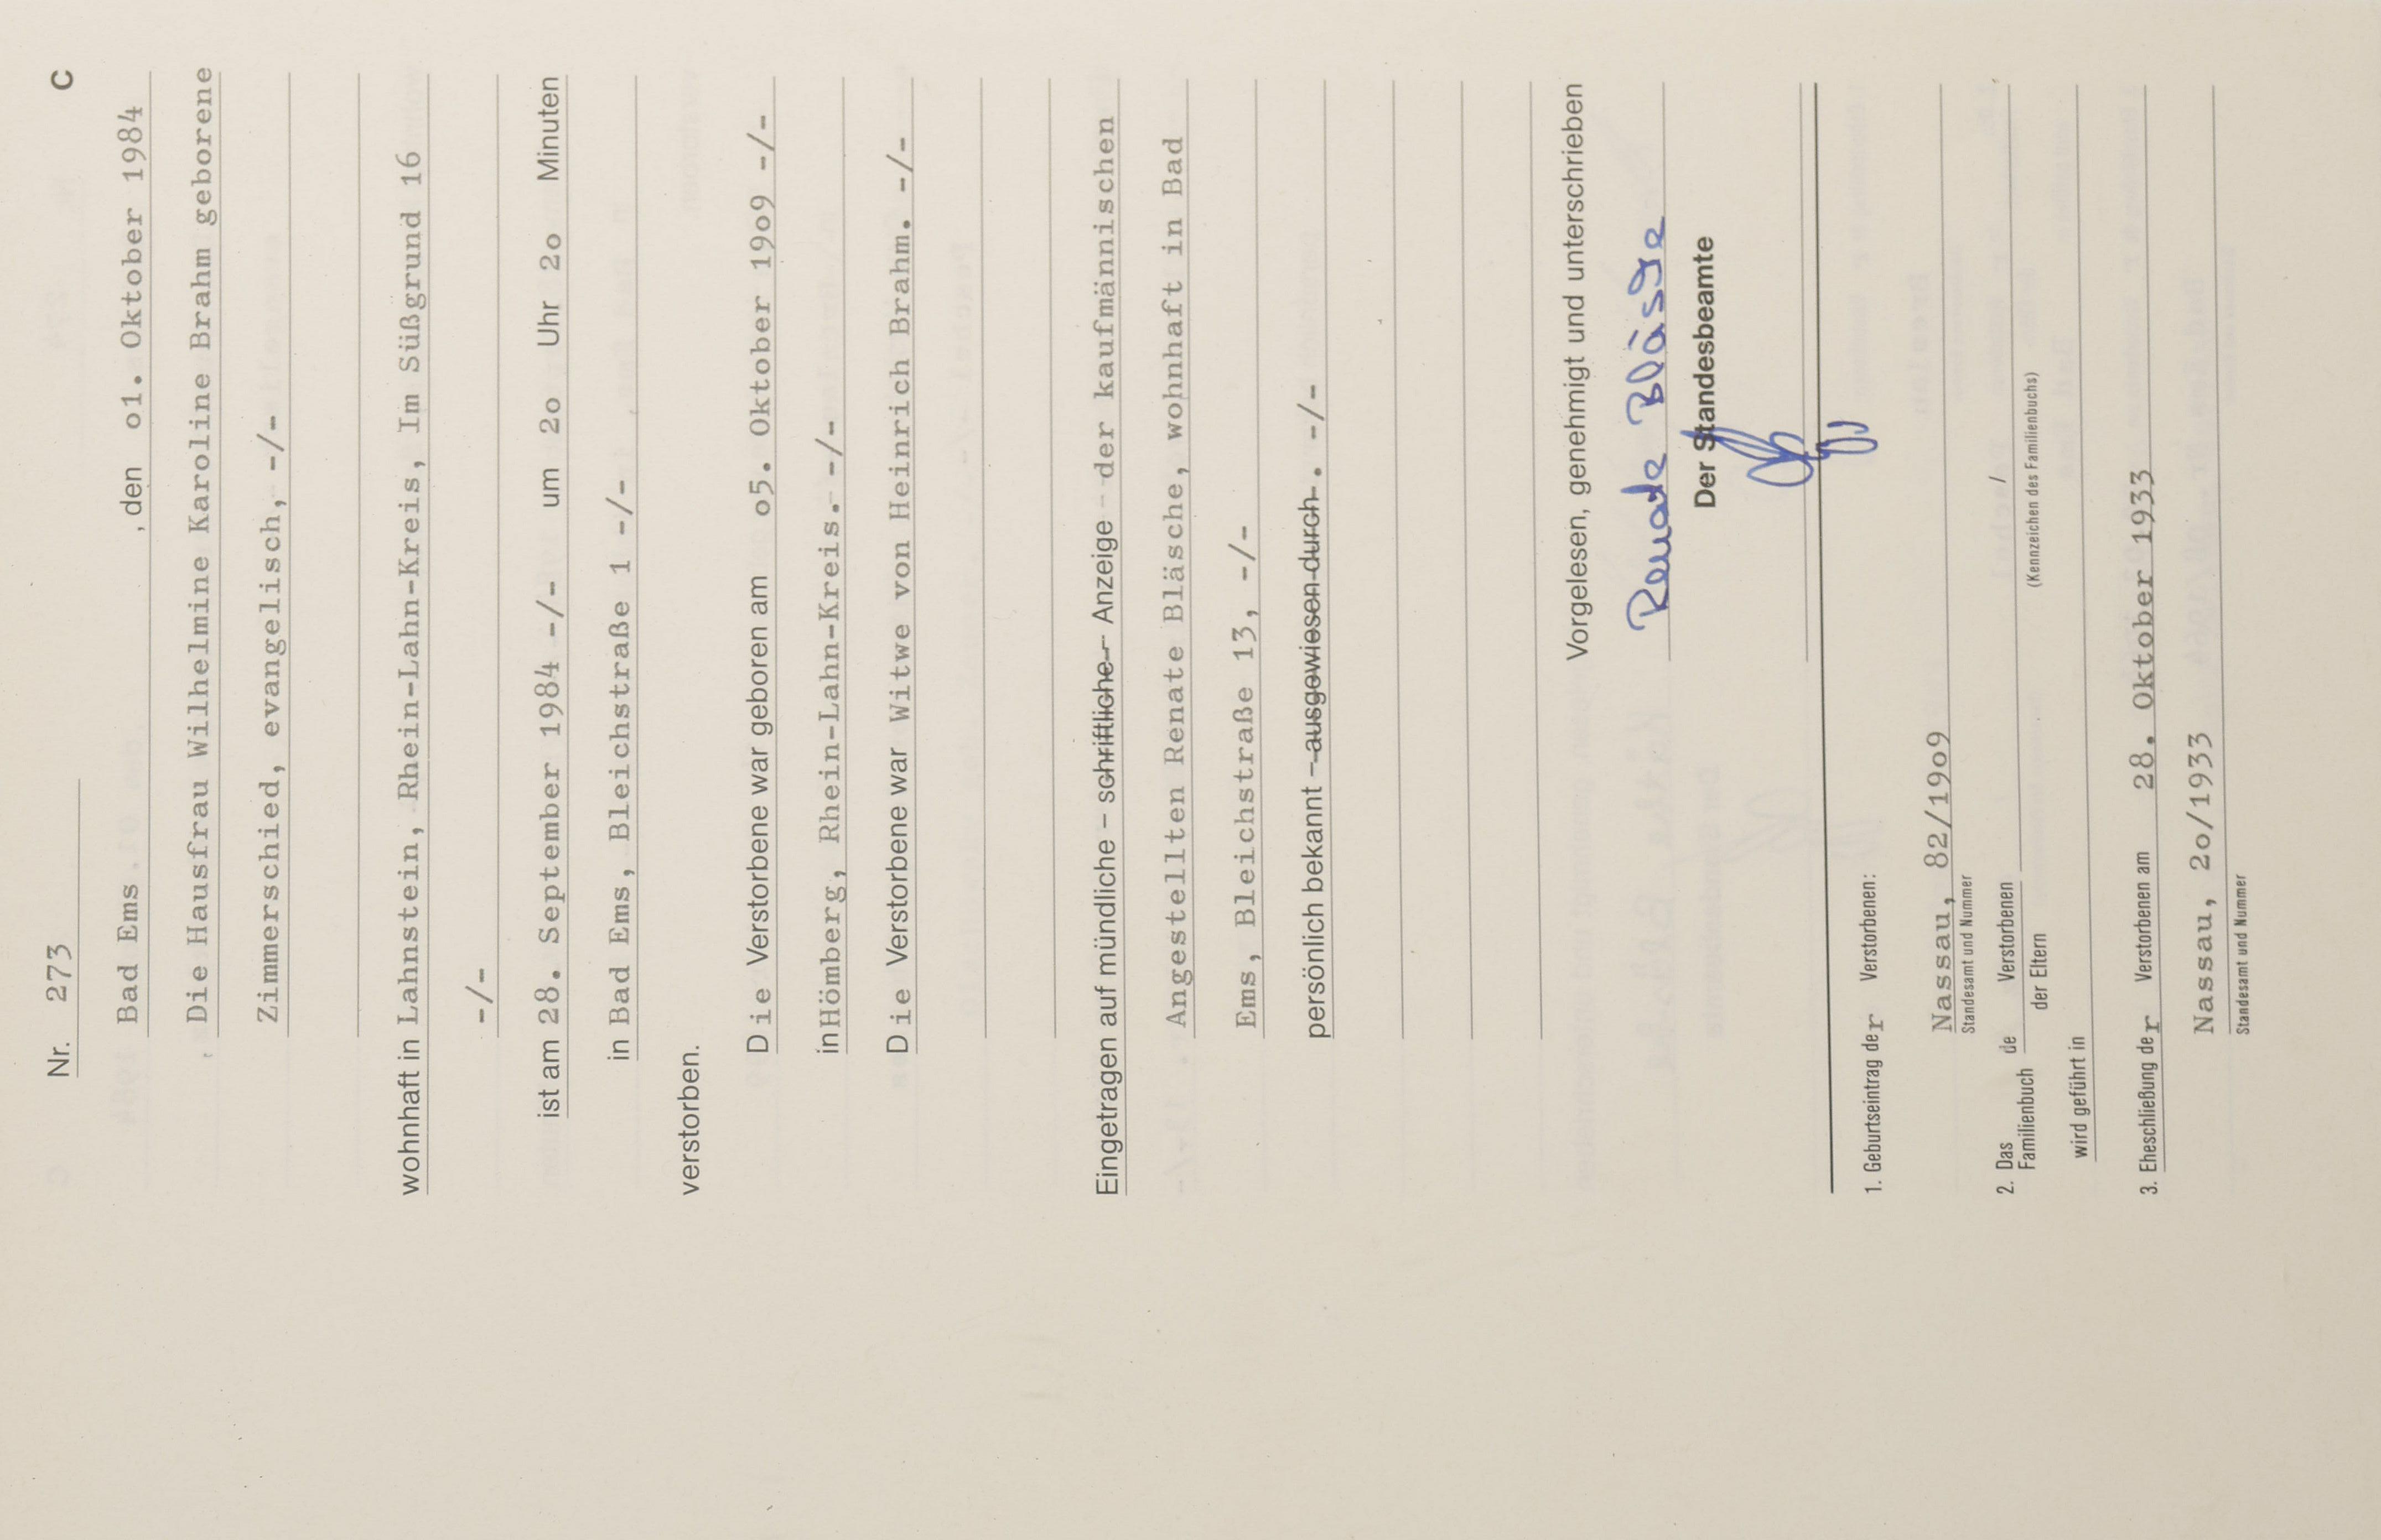 Nr. 273 C
Bad Ems , den o1. Oktober 1984
Die Hausfrau Wilhelmine Karoline Brahm geborene
Zimmerschied, evangelisch, -/-
wohnhaft in Lahnstein, Rhein-Lahn-Kreis, Im Süßgrund 16
-/-
ist am 28. September 1984 -/- um 2o Uhr 2o Minuten
in Bad Ems, Bleichstraße 1 -/-
verstorben.
Die Verstorbene war geboren am o5. Oktober 19o9 -/-
in Hömberg, Rhein-Lahn-Kreis. -/-
Die Verstorbene war Witwe von Heinrich Brahm. -/-
Eingetragen auf mündliche – schriftliche – Anzeige der kaufmännischen
Angestellten Renate Bläsche, wohnhaft in Bad
Ems, Bleichstraße 13, -/-
persönlich bekannt – ausgewiesen durch . -/-
Vorgelesen, genehmigt und unterschrieben
Renate Bläsche
Der Standesbeamte
1. Geburtseintrag der Verstorbenen:
Nassau, 82/19o9
Standesamt und Nummer
2. Das Familienbuch de Verstorbenen / der Eltern /
(Kennzeichen des Familienbuchs)
wird geführt in
3. Eheschließung der Verstorbenen am 28. Oktober 1933
Nassau, 2o/1933
Standesamt und Nummer